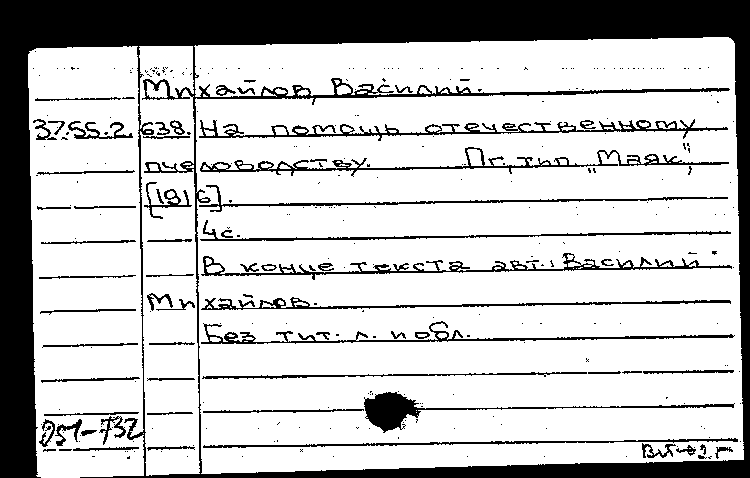 Михайлов, Василий.
37.55.2. 638. На помощь отечественному
пчеловодству. Пг., тип. „Маяк",
[1916].
4с.
В конце текста авт.: Василий
Михайлов.
Без тит. л. и обл.